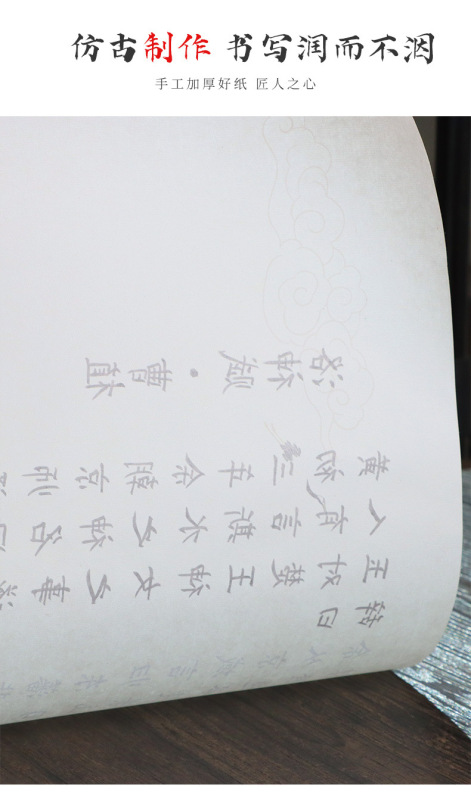 仿古制作 书写润而不洇
手工加厚好纸 匠人之心
洛神赋·曹植
黄初三年余朝京师
人有言斯水之神名曰
玉对楚王神女之事遂
辞曰